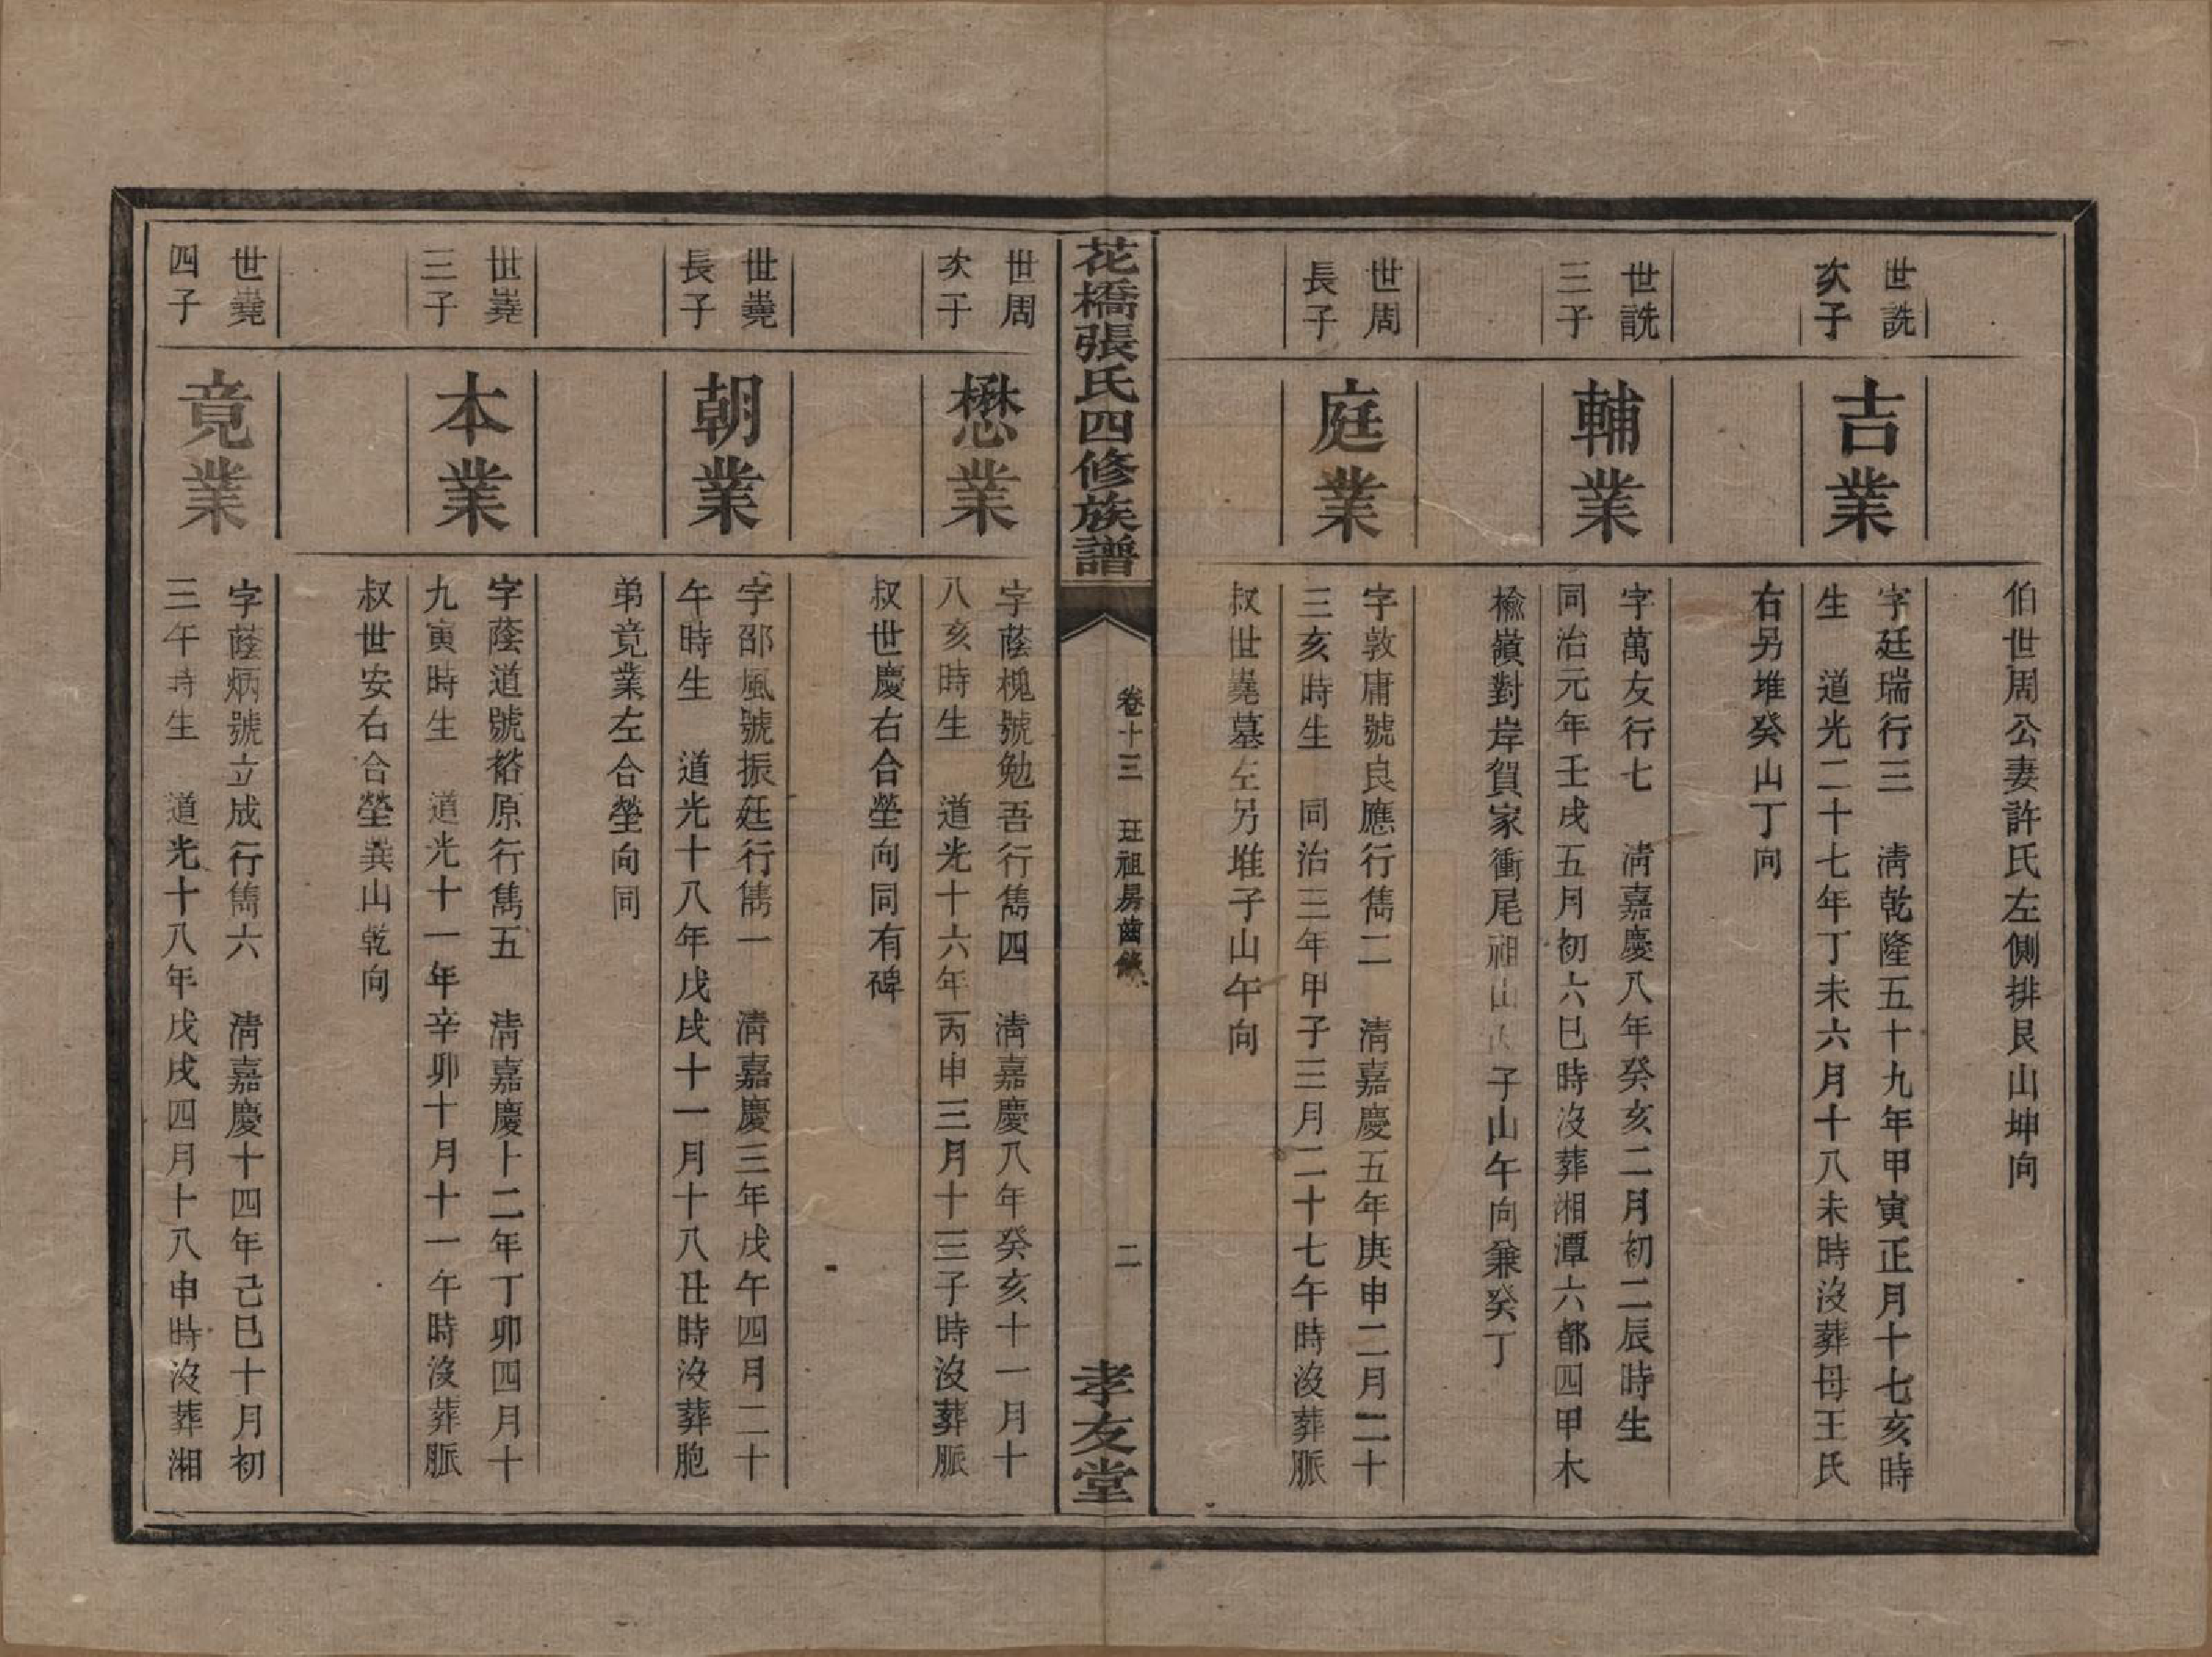 伯世周公妻許氏左側排艮山坤向
世詵
次子
吉業
字廷瑞行三　清乾隆五十九年甲寅正月十七亥時
生　道光二十七年丁未六月十八未時沒葬母王氏
右另堆癸山丁向
世詵
三子
輔業
字萬友行七　清嘉慶八年癸亥二月初二辰時生
同治元年壬戌五月初六巳時沒葬湘潭六都四甲木
檢嶺對岸賀家衝尾祖山內子山午向兼癸丁
世周
長子
庭業
字敦庸號良應行儁二　清嘉慶五年庚申二月二十
三亥時生　同治三年甲子三月二十七午時沒葬脈
叔世嶤墓左另堆子山午向
花橋張氏四修族譜
卷十三　班祖房齒錄
二
孝友堂
世周
次子
懋業
字蔭槐號勉吾行儁四　清嘉慶八年癸亥十一月十
八亥時生　道光十六年丙申三月十三子時沒葬脈
叔世慶右合塋向同有碑
世嶤
長子
朝業
字邵風號振廷行儁一　清嘉慶三年戊午四月二十
午時生　道光十八年戊戌十一月十八丑時沒葬胞
弟竟業左合塋向同
世嶤
三子
本業
字蔭道號裕原行儁五　清嘉慶十二年丁卯四月十
九寅時生　道光十一年辛卯十月十一午時沒葬脈
叔世安右合塋巽山乾向
世嶤
四子
竟業
字蔭炳號立成行儁六　清嘉慶十四年己巳十月初
三午時生　道光十八年戊戌四月十八申時沒葬湘